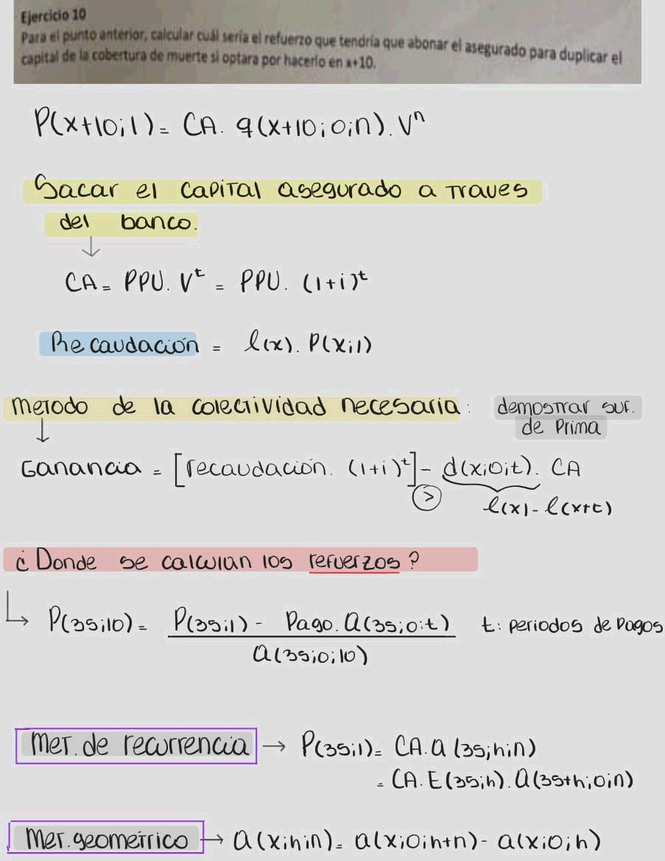 Ejercicio 10
Para el punto anterior, calcular cuál sería el refuerzo que tendría que abonar el asegurado para duplicar el
capital de la cobertura de muerte si optara por hacerlo en x+10.
P(x+10;1)= CA. q(x+10;0;n).Vⁿ
Sacar el capital asegurado a traves
del banco.
↓
CA= PPU. Vᵗ = PPU. (1+i)ᵗ
Recaudación = l(x). P(x;1)
metodo de la colectividad necesaria: demostrar suf.
de Prima
↓
Ganancia = [recaudación. (1+i)ᵗ]- d(x;0;t). CA
> l(x)-l(x+t)
¿Donde se calculan los refuerzos?
↳ P(35;10)= P(35;1)- Pago. a(35;0;t) t: periodos de pagos
a(35;0;10)
Met. de recurrencia → P(35;1)= CA.a(35;h;n)
= CA.E(35;h).a(35+h;0;n)
Met. geometrico → a(x;h;n)= a(x;0;h+n)- a(x;0;h)